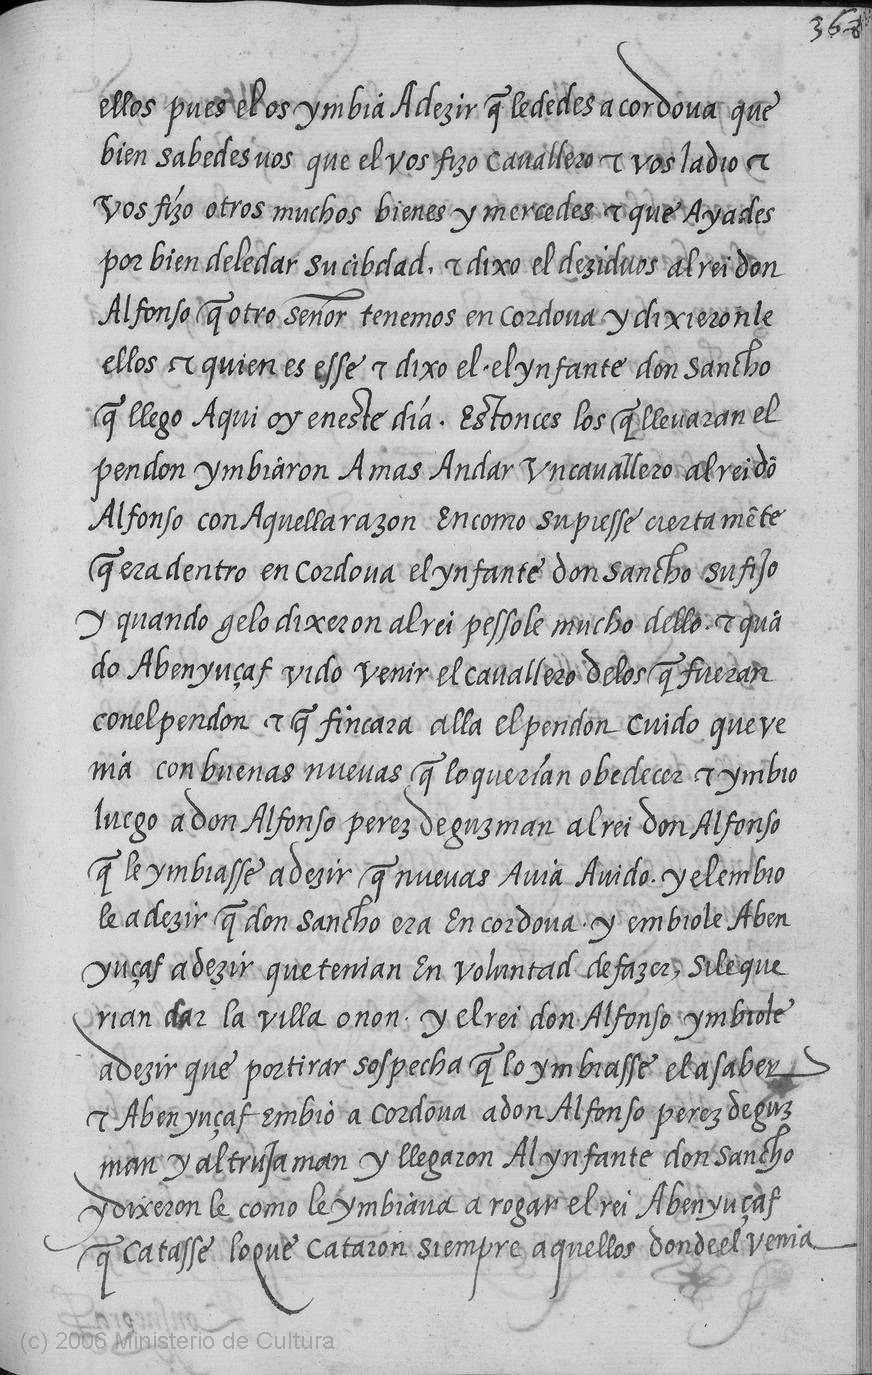 368
ellos pues el os ymbiá Adezir q̃ lededes a cordoua que
bien sabedes uos que el vos fizo cauallero ⁊ vos la dio ⁊
vos fizo otros muchos bienes y mercedes ⁊ que Ayades
por bien dele dar su cibdad. ⁊ dixo el deziduos al rei don
Alfonso q̃ otro señor tenemos en cordoua y dixieronle
ellos ⁊ quien es esse ⁊ dixo el. el ynfante don sancho
q̃ llego Aqui oy en este día. Estonces los q̃ lleuaran el
pendon ymbiáron A mas Andar vn cauallero al rei dõ
Alfonso con Aquella razon En como supiesse ciertamẽte
q̃ era dentro en cordoua el ynfante don sancho su fijo
y quando gelo dixeron al rei pessole mucho dello. ⁊ quã
do Abenyuçaf vido venir el cauallero delos q̃ fueran
con el pendon ⁊ q̃ fincara alla el pendon cuido que ve
niá con buenas nueuas q̃ lo querían obedecer ⁊ ymbio
luego a don Alfonso perez de guzman al rei don Alfonso
q̃ le ymbiasse a dezir q̃ nueuas Auiá Auido. y el embio
le a dezir q̃ don sancho era En cordoua. y embiole Aben
yuçaf a dezir que tenian En voluntad de fazer, si le que
rian dar la villa o non. y el rei don Alfonso ymbiole
adezir que por tirar sospecha q̃ lo ymbiasse el a saber
⁊ Abenyuçaf Embió a cordoua a don Alfonso perez de guz
man y al trujaman y llegaron Al ynfante don sancho
y dixeron le como le ymbiáua a rogar el rei Abenyuçaf
q̃ catasse lo que cataron siempre aquellos donde el venia
(c) 2006 Ministerio de Cultura